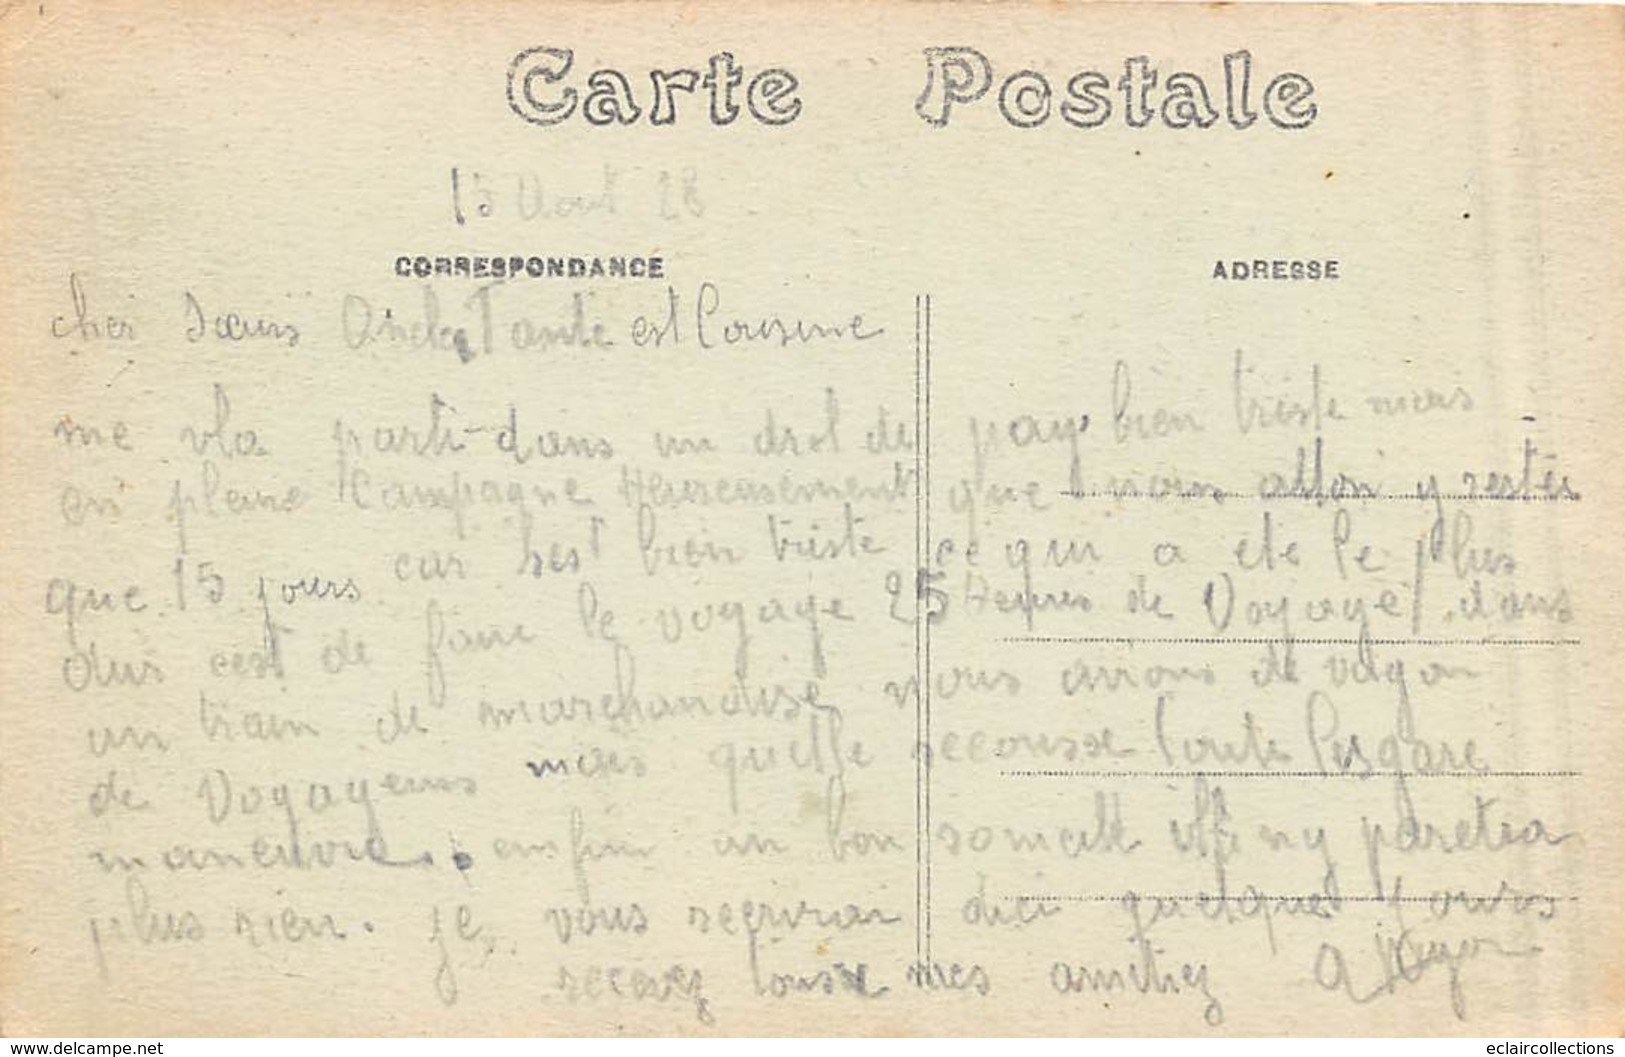 Carte Postale
15 Aout 28
CORRESPONDANCE
ADRESSE
cher Sœurs Oncle Tante est Cousine
me vla parti dans un drol de pay bien triste mais
en pleine Campagne Heureusement que nous allon y rester
que 15 jours car sest bien triste ce qui a ete le plus
dur cest de faire le voyage 25 Heures de Voyage dans
un train de marchandise nous avions de vagon
de Voyageurs mais quelle secousse toute les gare
maneuvre. enfin un bon someill iff ny paretra
plus rien. je vous recrirai dici quelque jours
recevez tous mes amitiez A
www.delcampe.net
eclaircollections